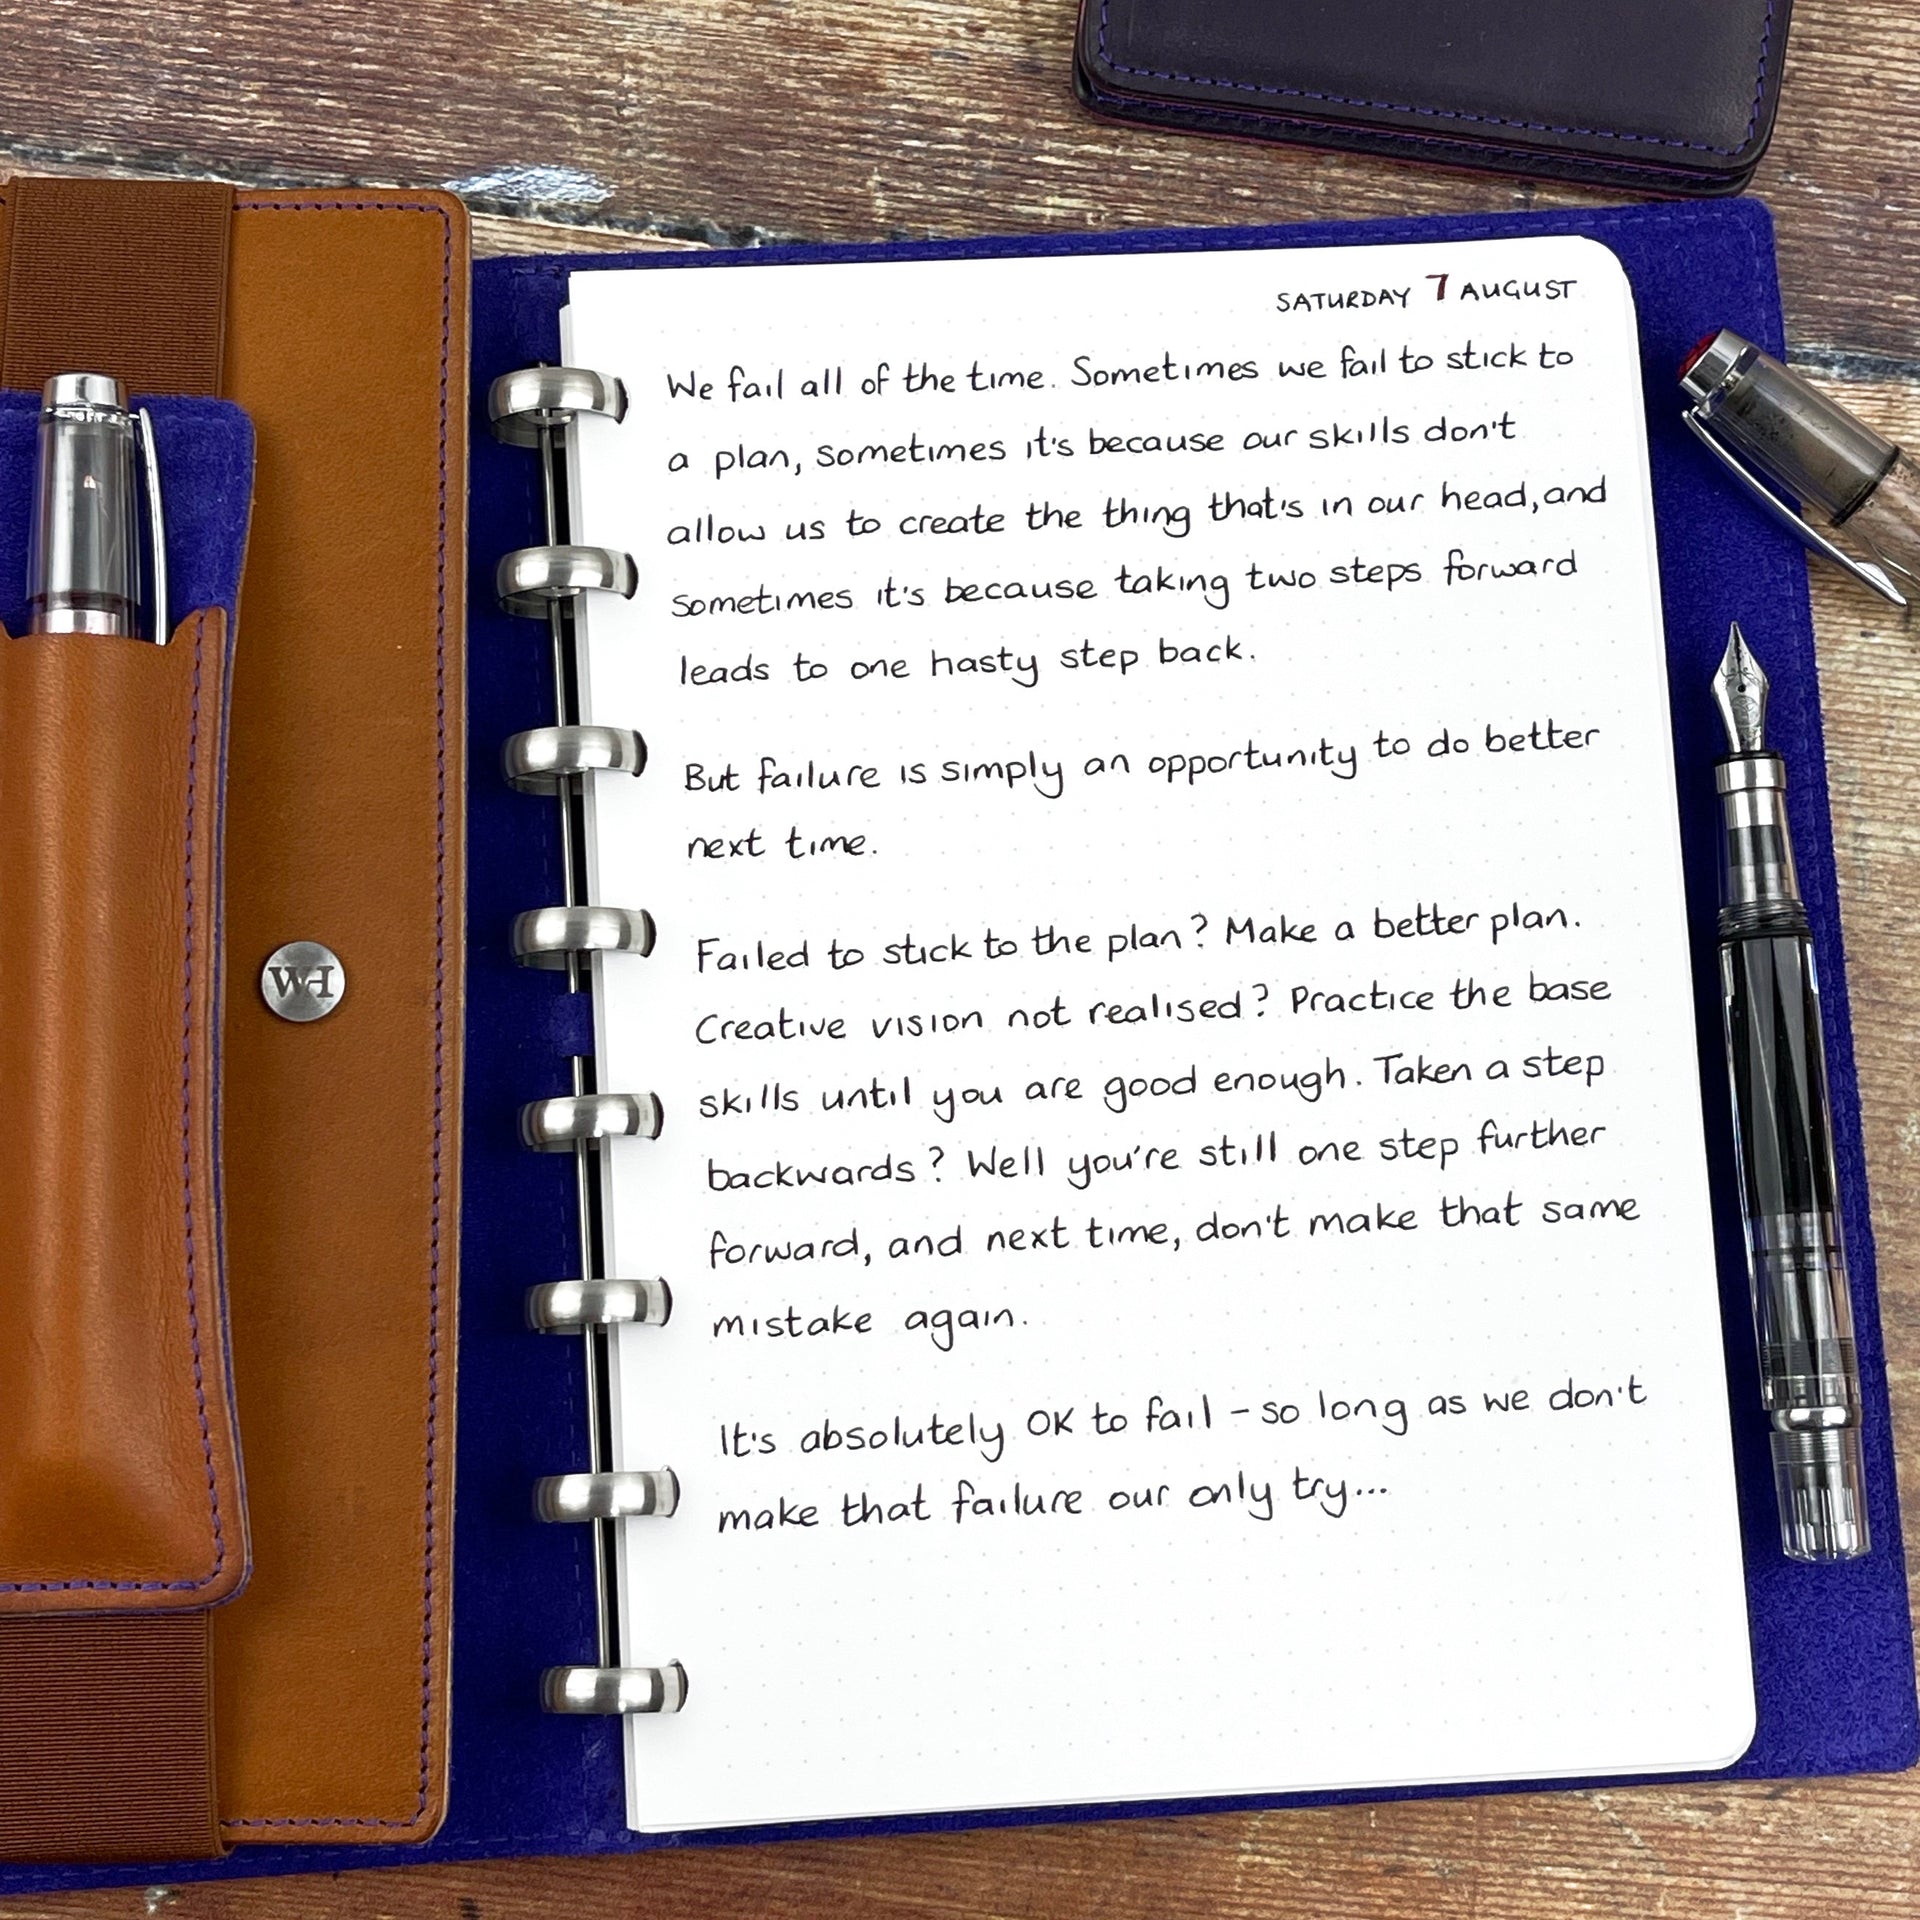 SATURDAY 7 AUGUST
We fail all of the time. Sometimes we fail to stick to
a plan, sometimes it's because our skills don't
allow us to create the thing that's in our head, and
sometimes it's because taking two steps forward
leads to one hasty step back.
But failure is simply an opportunity to do better
next time.
Failed to stick to the plan? Make a better plan.
Creative vision not realised? Practice the base
skills until you are good enough. Taken a step
backwards? Well you're still one step further
forward, and next time, don't make that same
mistake again.
It's absolutely OK to fail - so long as we don't
make that failure our only try...
WH